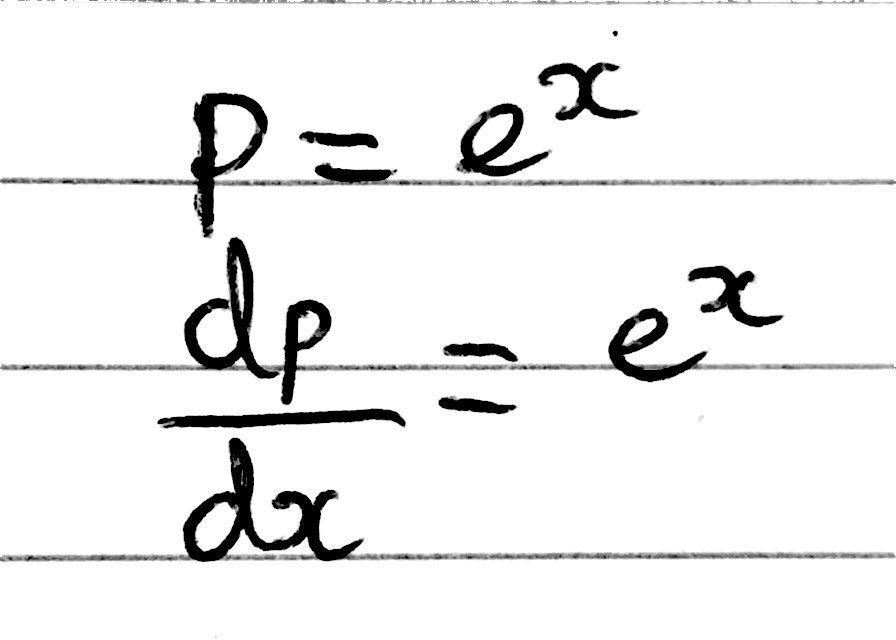 p = e^x
dp/dx = e^x